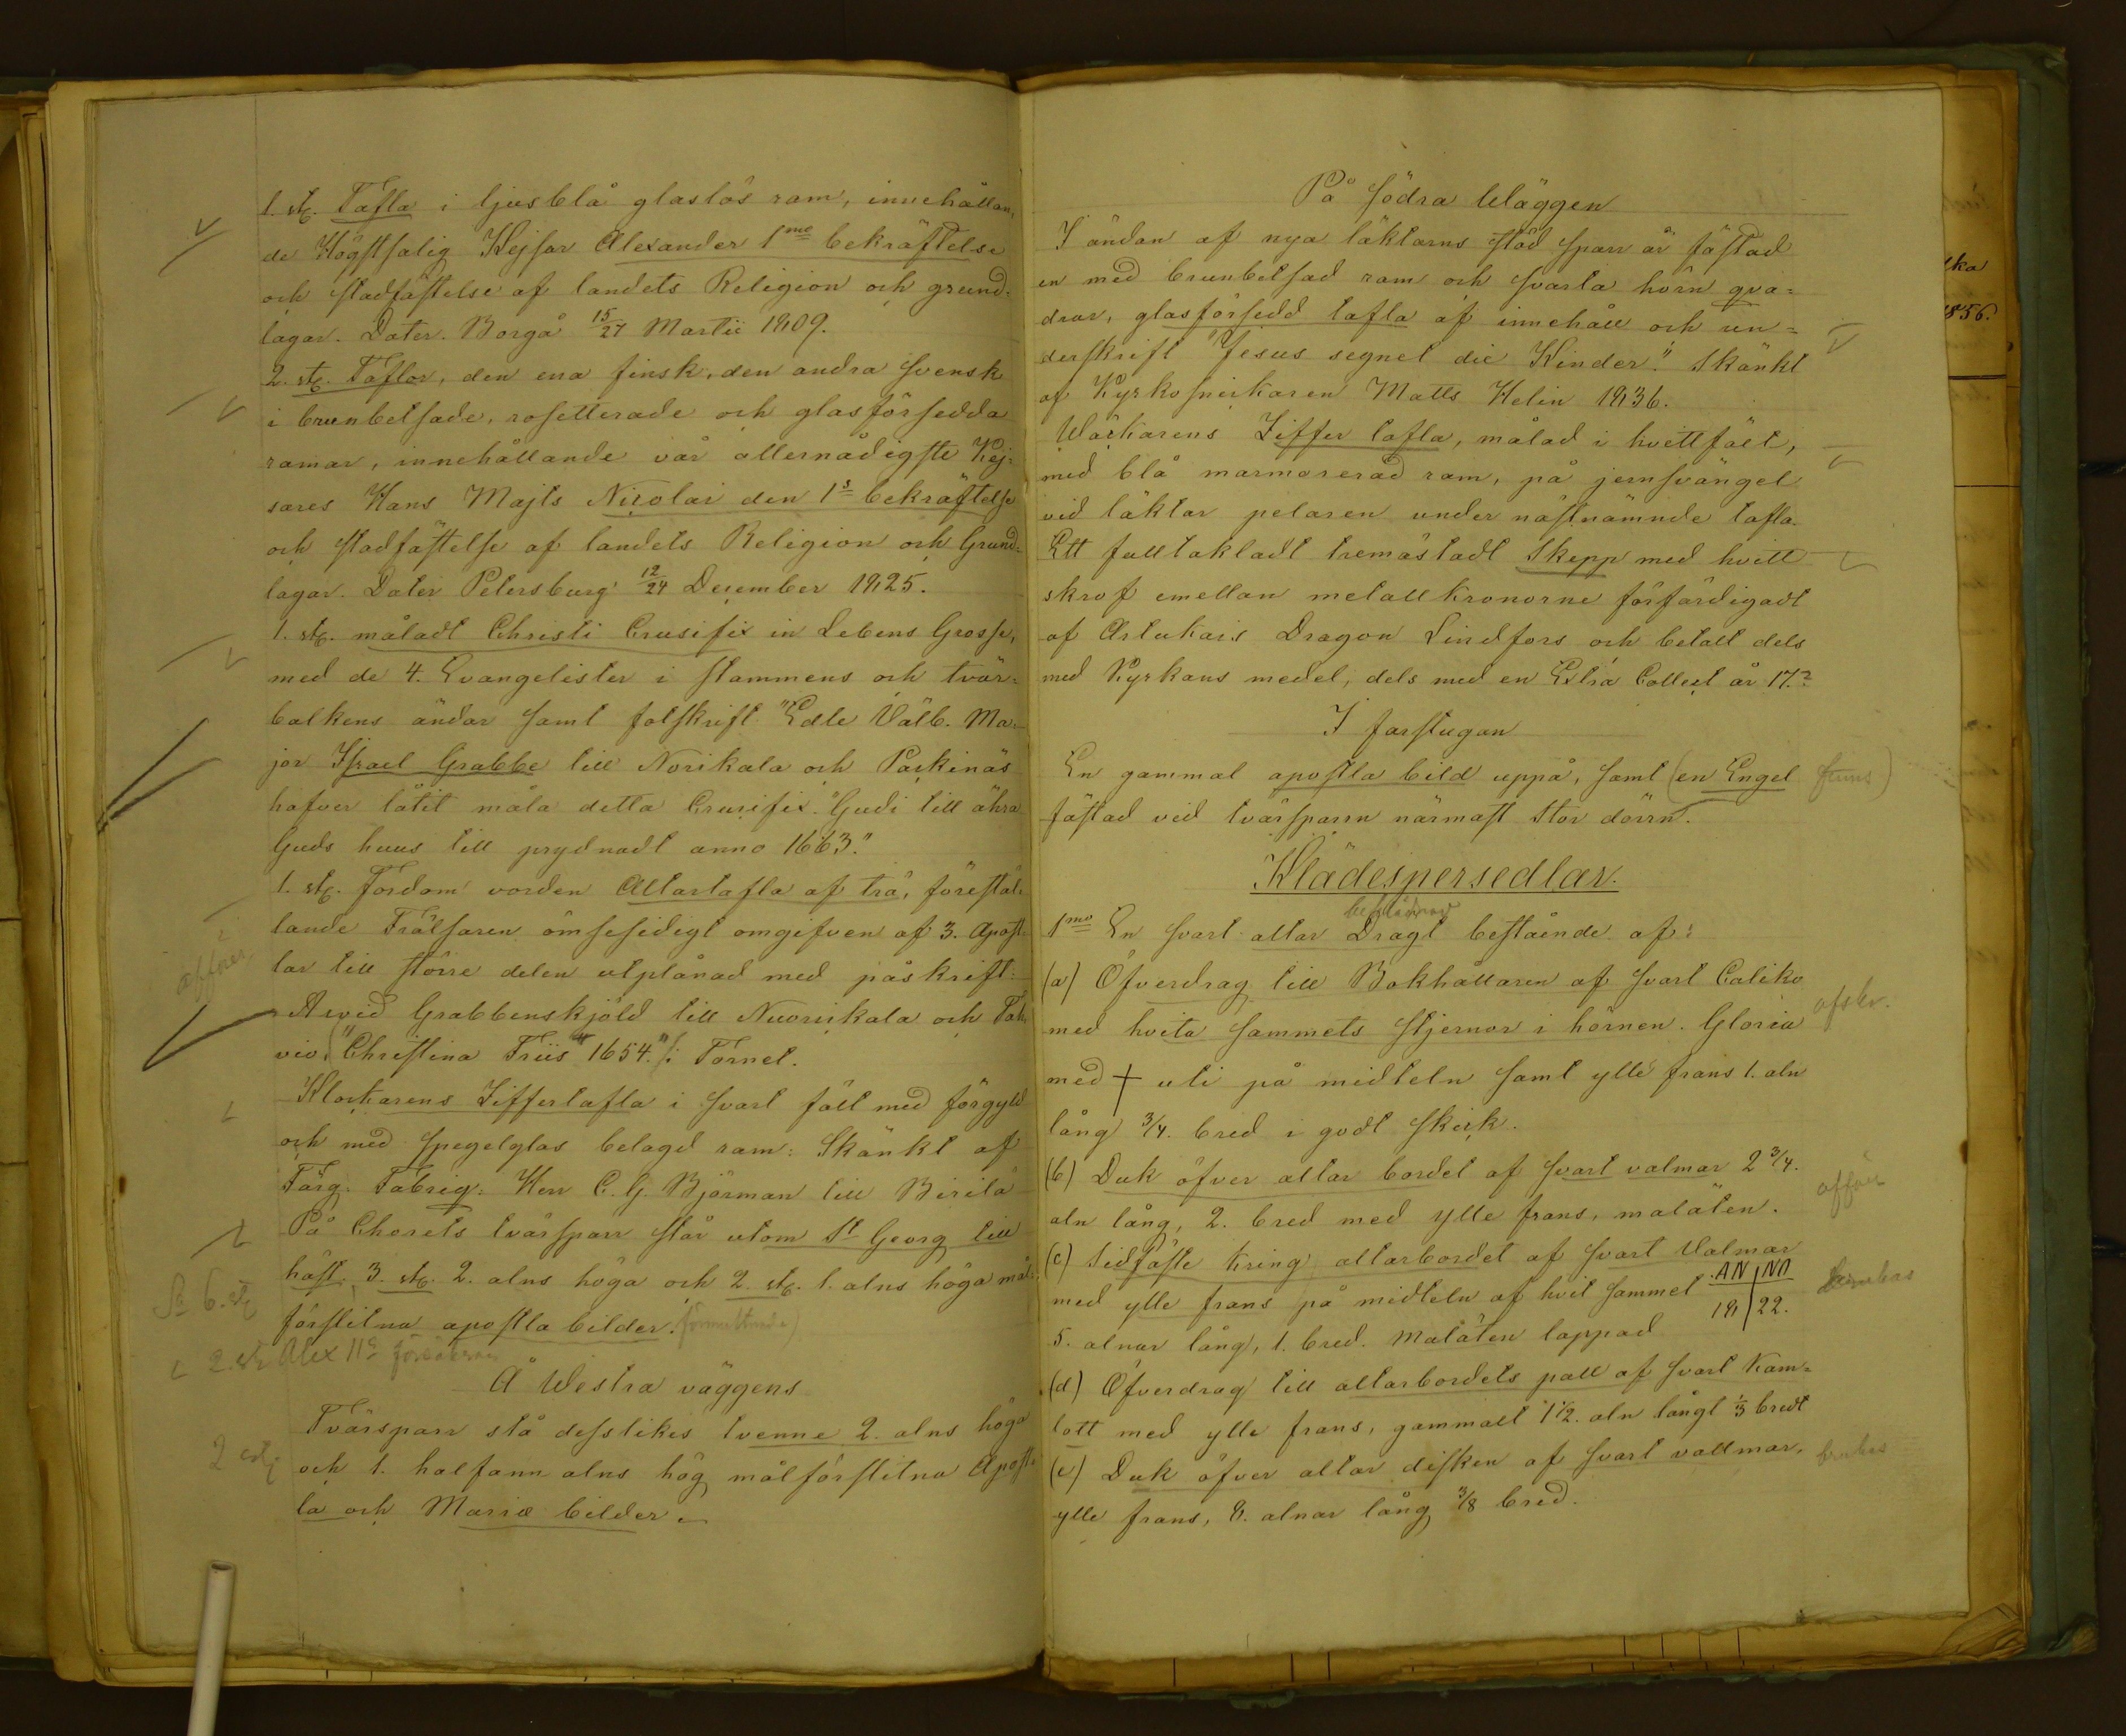 1. st. Tafla i ljusblå glaslös ram, innehållan-
de Högstsalig Kejsar Alexander 1mo bekräftelse
och stadfästelse af landets Religion och grund-
lagar. Dater. Borgå 15/27 Martii 1809.
2. st. Taflor, den ena finsk, den andra svensk
i brunbetsade, rosetterade och glasförsedda
ramar, innehållande vår allernådigste Kej-
sares Hans Majts Nicolai den 1s bekräftelse
och stadfästelse af landets Religion och Grund-
lagar. Dater Petersburg 12/24 December 1825.
1. st. måladt Christi Crusifix in Lebens Grosse,
med de 4. Evangelister i stammens och tvär-
balkens ändar samt fotskrift "Edle Välb. Ma-
jor Israel Grabbe till Norikala och Parkinäs
hafver låtit måla detta Crucifix. Gudi till ähra
Guds huus till prydnadt anno 1663."
1. st. Fördom vorden Altartafla af trä, förestäl-
lande Frälsaren ömsesidigt omgifven af 3. Apost-
lar till större delen utplånad med påskrift:
Arvid Grabbenskjöld till Nuorikala och
vio. "Christina Friis 1654." i Tornet.
Klockarens Ziffertafla i svart fält med förgyld
och med spegelglas belagd ram: Skänkt af
Färg. Fabriq. Herr C. G. Björman till Birilä
På Chorets tvärsparr står utom St Georg till
häst, 3. st. 2. alns höga och 2. st. 1. alns höga mål-
förslitna apostla bilder.
6. st
2. st Alex II:s
Å Westra väggens
Tvärsparr stå desslikes tvenne 2. alns höga
och 1. halfann alns hög målförslitna Apost-
la och Mariæ bilder.
2 st
På södra Wäggen
I ändan af nya läktarns stöd sparr är fästad
en med brunbetsad ram och svarta hörn qva-
drar, glasförsedd tafla af innehåll och un-
derskrift "Jesus segnet die Kinder." Skänkt
af Kyrkosnickaren Matts Helin 1836.
Wäckarens Ziffer tafla, målad i hvitt fält,
med blå marmorerad ram, på jernsvängel
vid läktar pelaren under nästnämnde tafla.
Ett fulltakladt tremästadt Skepp med hvitt
skrof emellan metall kronorne förfärdigadt
af Artukais Dragon Lindfors och betalt dels
med Kyrkans medel, dels med en Extra Collect år 17.?
I farstugan
En gammal apostla bild uppå, samt (en Engel finns)
fästad vid tvärsparrn närmast Stor dörrn.
Klädespersedlar.
1mo En svart altar Dragt bestående af:
(a) Öfverdrag till Bokhållaren af svart Caliko
med hvita sammets stjernor i hörnen. Gloria
med † uti på midteln samt ylle frans 1. aln
lång 3/4. bred i godt skick.
(b) Duk öfver altar bordet af svart valmar 2 3/4.
aln lång, 2. bred med ylle frans, malåten.
(c) Sidfäste kring altarbordet af svart Valmar
med ylle frans på midteln af hvit sammet AN NO
5. alnar lång, 1. bred. Malåten lappad 18 22.
(d) Öfverdrag till altarbordets pall af svart Kam-
lott med ylle frans, gammalt 1 1/2. aln långt 1/3 bredt
(e) Duk öfver altar disken af svart vallmar,
ylle frans, 8. alnar lång 3/8 bred.